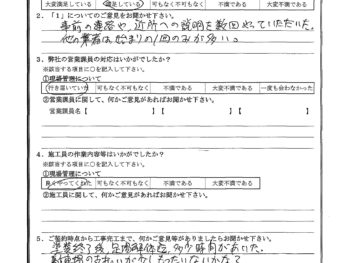 大変満足している 満足している 可もなく不可もなく 不満である 大変不満である
2．「1」についてのご意見をお聞かせ下さい。
事前の連絡や、近所への説明を数回やっていただいた。
他の業者は始まりの1回のみが多い。
3．弊社の営業課員の対応はいかがでしたか？
※該当する項目に○を記入して下さい。
①現場管理について
行き届いていた 可もなく不可もなく 不満である 大変不満である 一度も会わなかった
②営業課員に関して、何かご意見があればお聞かせ下さい。
営業課員名【 】【 】【 】
4．施工員の作業内容等はいかがでしたか？
※該当する項目に○を記入して下さい。
①現場管理について
良くやってくれた 可もなく不可もなく 不満である 大変不満である
②施工員に関して、何かご意見があればお聞かせ下さい。
5．ご契約時点から工事完工まで、何かご意見等がありましたらお聞かせ下さい。
塗装終了後、足場解体迄、少々時間があいた。